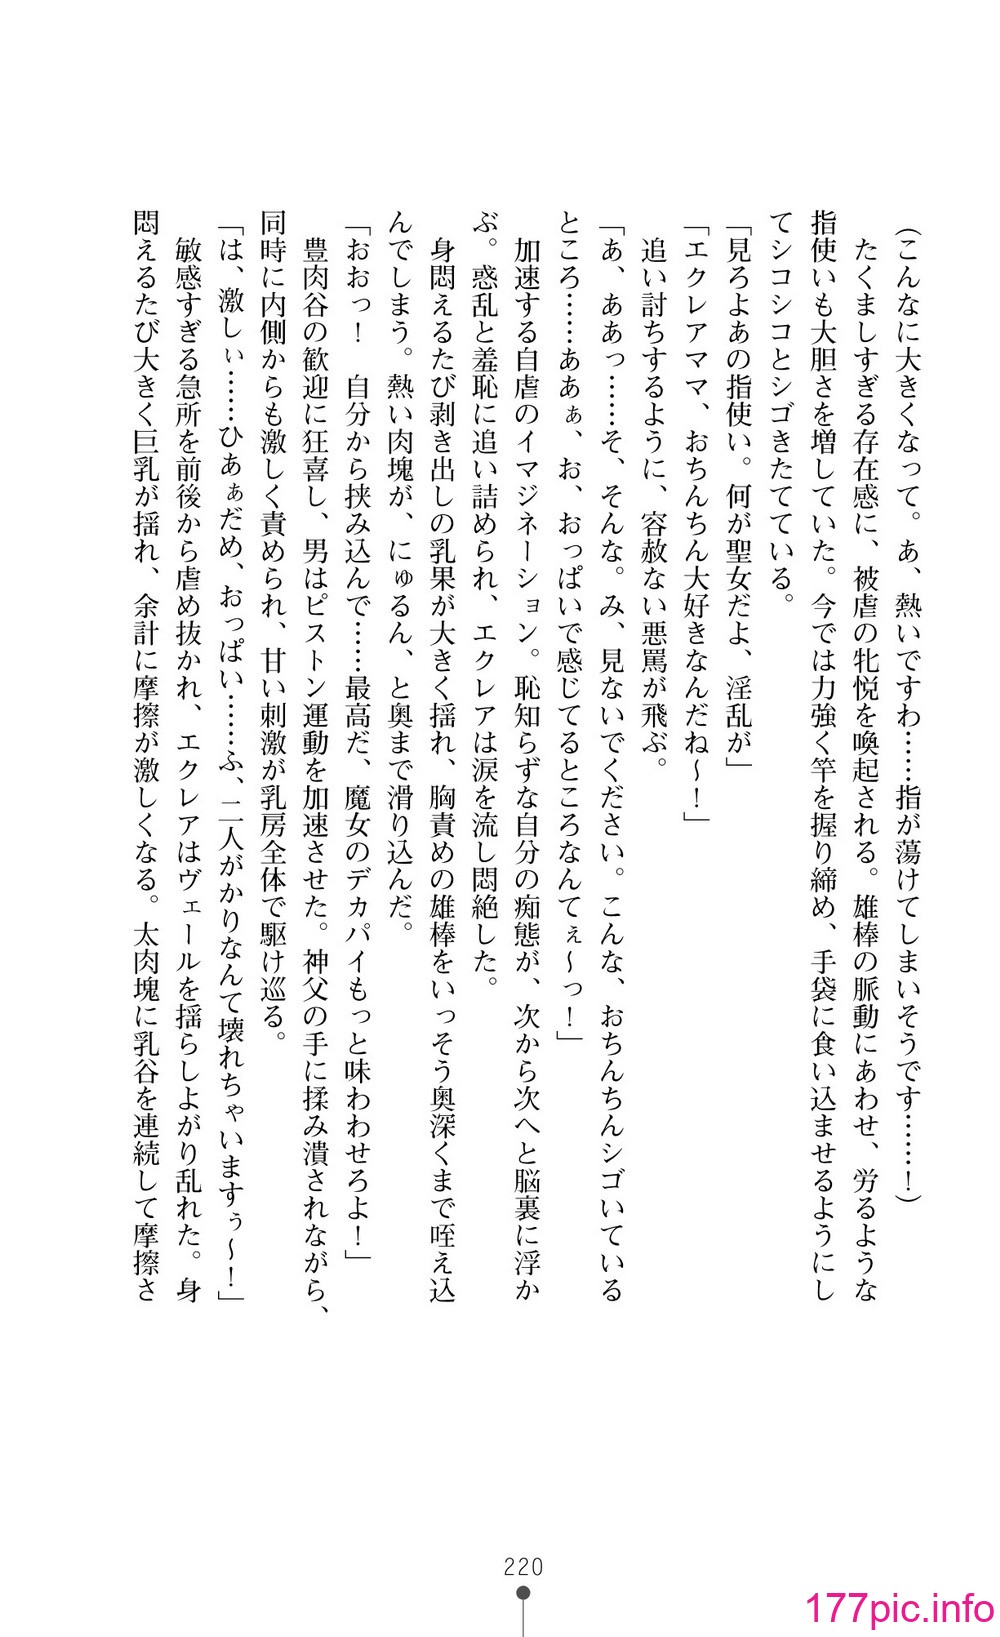 (こんなに大きくなって。あ、熱いですわ……指が蕩けてしまいそうです……！)
　たくましすぎる存在感に、被虐の牝悦を喚起される。雄棒の脈動にあわせ、労るような
指使いも大胆さを増していた。今では力強く竿を握り締め、手袋に食い込ませるようにし
てシコシコとシゴきたてている。
「見ろよあの指使い。何が聖女だよ、淫乱が」
「エクレアママ、おちんちん大好きなんだね～！」
　追い討ちするように、容赦ない悪罵が飛ぶ。
「あ、ああっ……そ、そんな。み、見ないでください。こんな、おちんちんシゴいている
ところ……あぁぁ、お、おっぱいで感じてるところなんてぇ～っ！」
　加速する自虐のイマジネーション。恥知らずな自分の痴態が、次から次へと脳裏に浮か
ぶ。惑乱と羞恥に追い詰められ、エクレアは涙を流し悶絶した。
　身悶えるたび剥き出しの乳果が大きく揺れ、胸責めの雄棒をいっそう奥深くまで咥え込
んでしまう。熱い肉塊が、にゅるん、と奥まで滑り込んだ。
「おおっ！　自分から挟み込んで……最高だ、魔女のデカパイもっと味わわせろよ！」
　豊肉谷の歓迎に狂喜し、男はピストン運動を加速させた。神父の手に揉み潰されながら、
同時に内側からも激しく責められ、甘い刺激が乳房全体で駆け巡る。
「は、激しぃ……ひあぁだめ、おっぱい……ふ、二人がかりなんて壊れちゃいますぅ～！」
　敏感すぎる急所を前後から虐め抜かれ、エクレアはヴェールを揺らしよがり乱れた。身
悶えるたび大きく巨乳が揺れ、余計に摩擦が激しくなる。太肉塊に乳谷を連続して摩擦さ
220
177pic.info